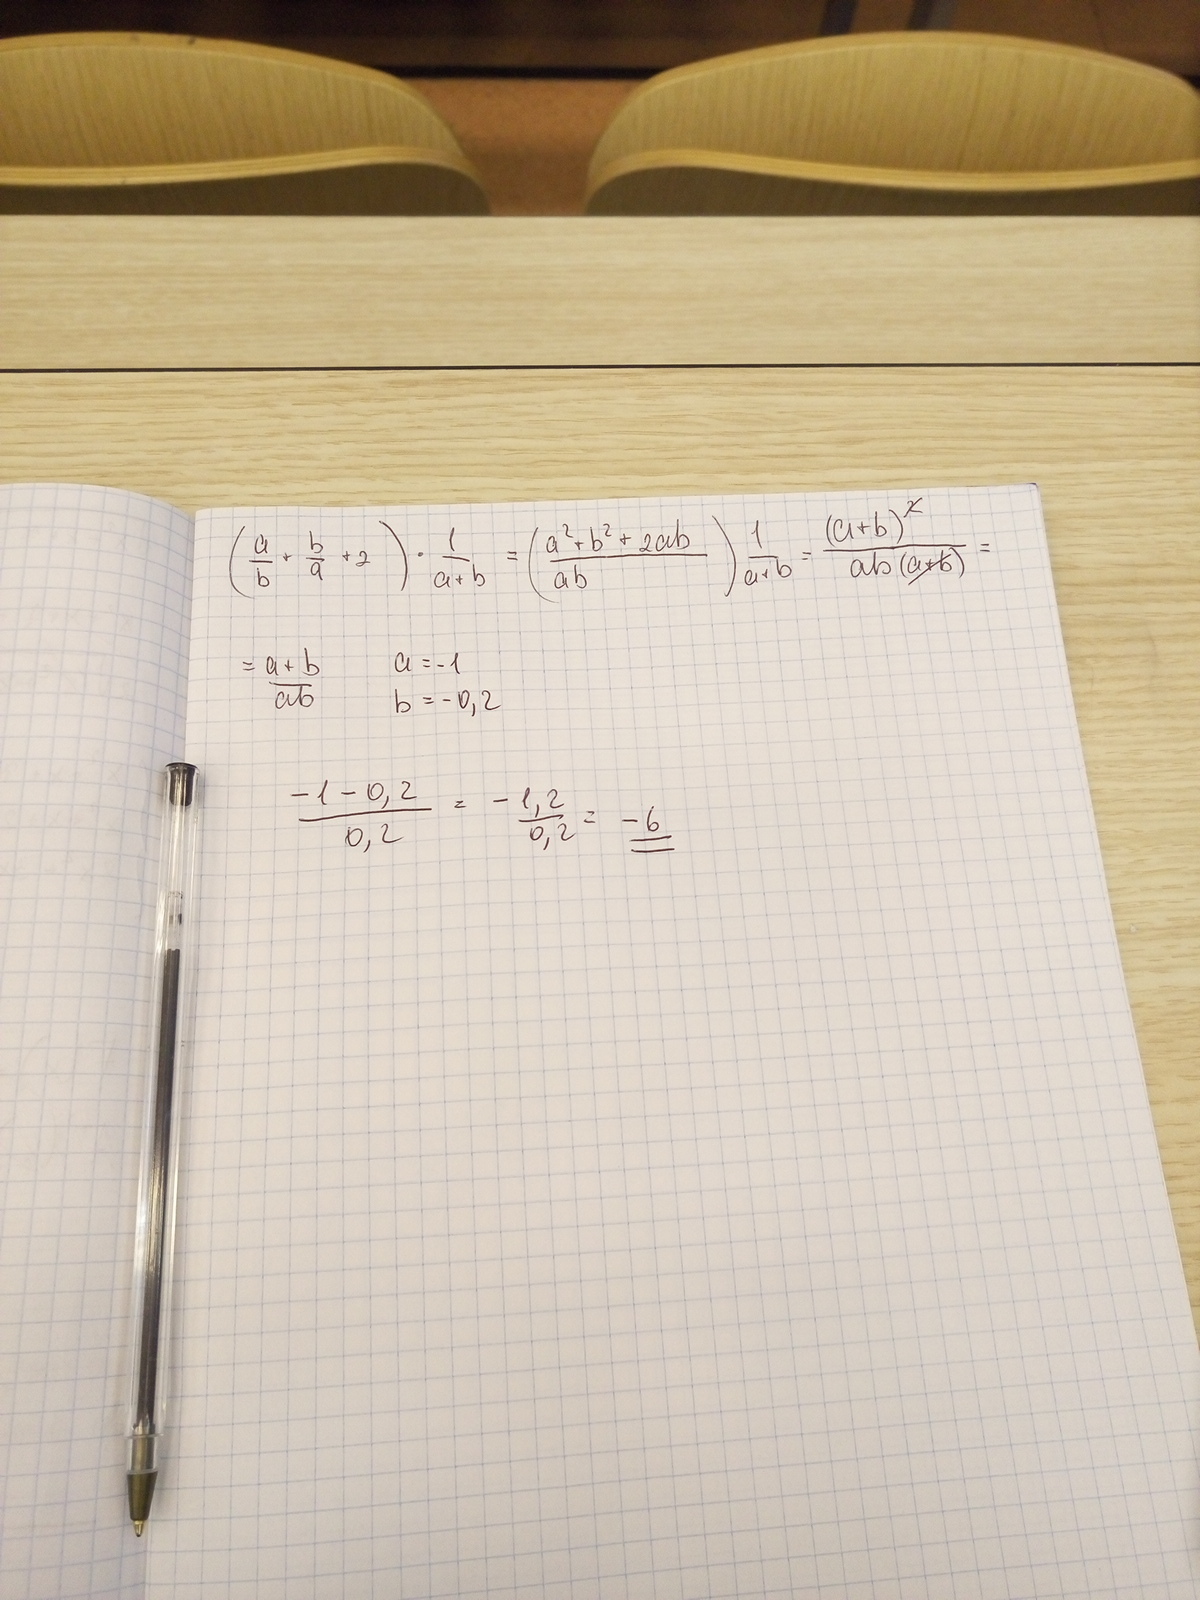 (a/b + b/a + 2) · 1/(a+b) = ((a²+b²+2ab)/(ab)) 1/(a+b) = (a+b)²/(ab(a+b)) =
= (a+b)/(ab)    a = -1
b = -0,2
(-1-0,2)/(0,2) = -1,2/0,2 = -6